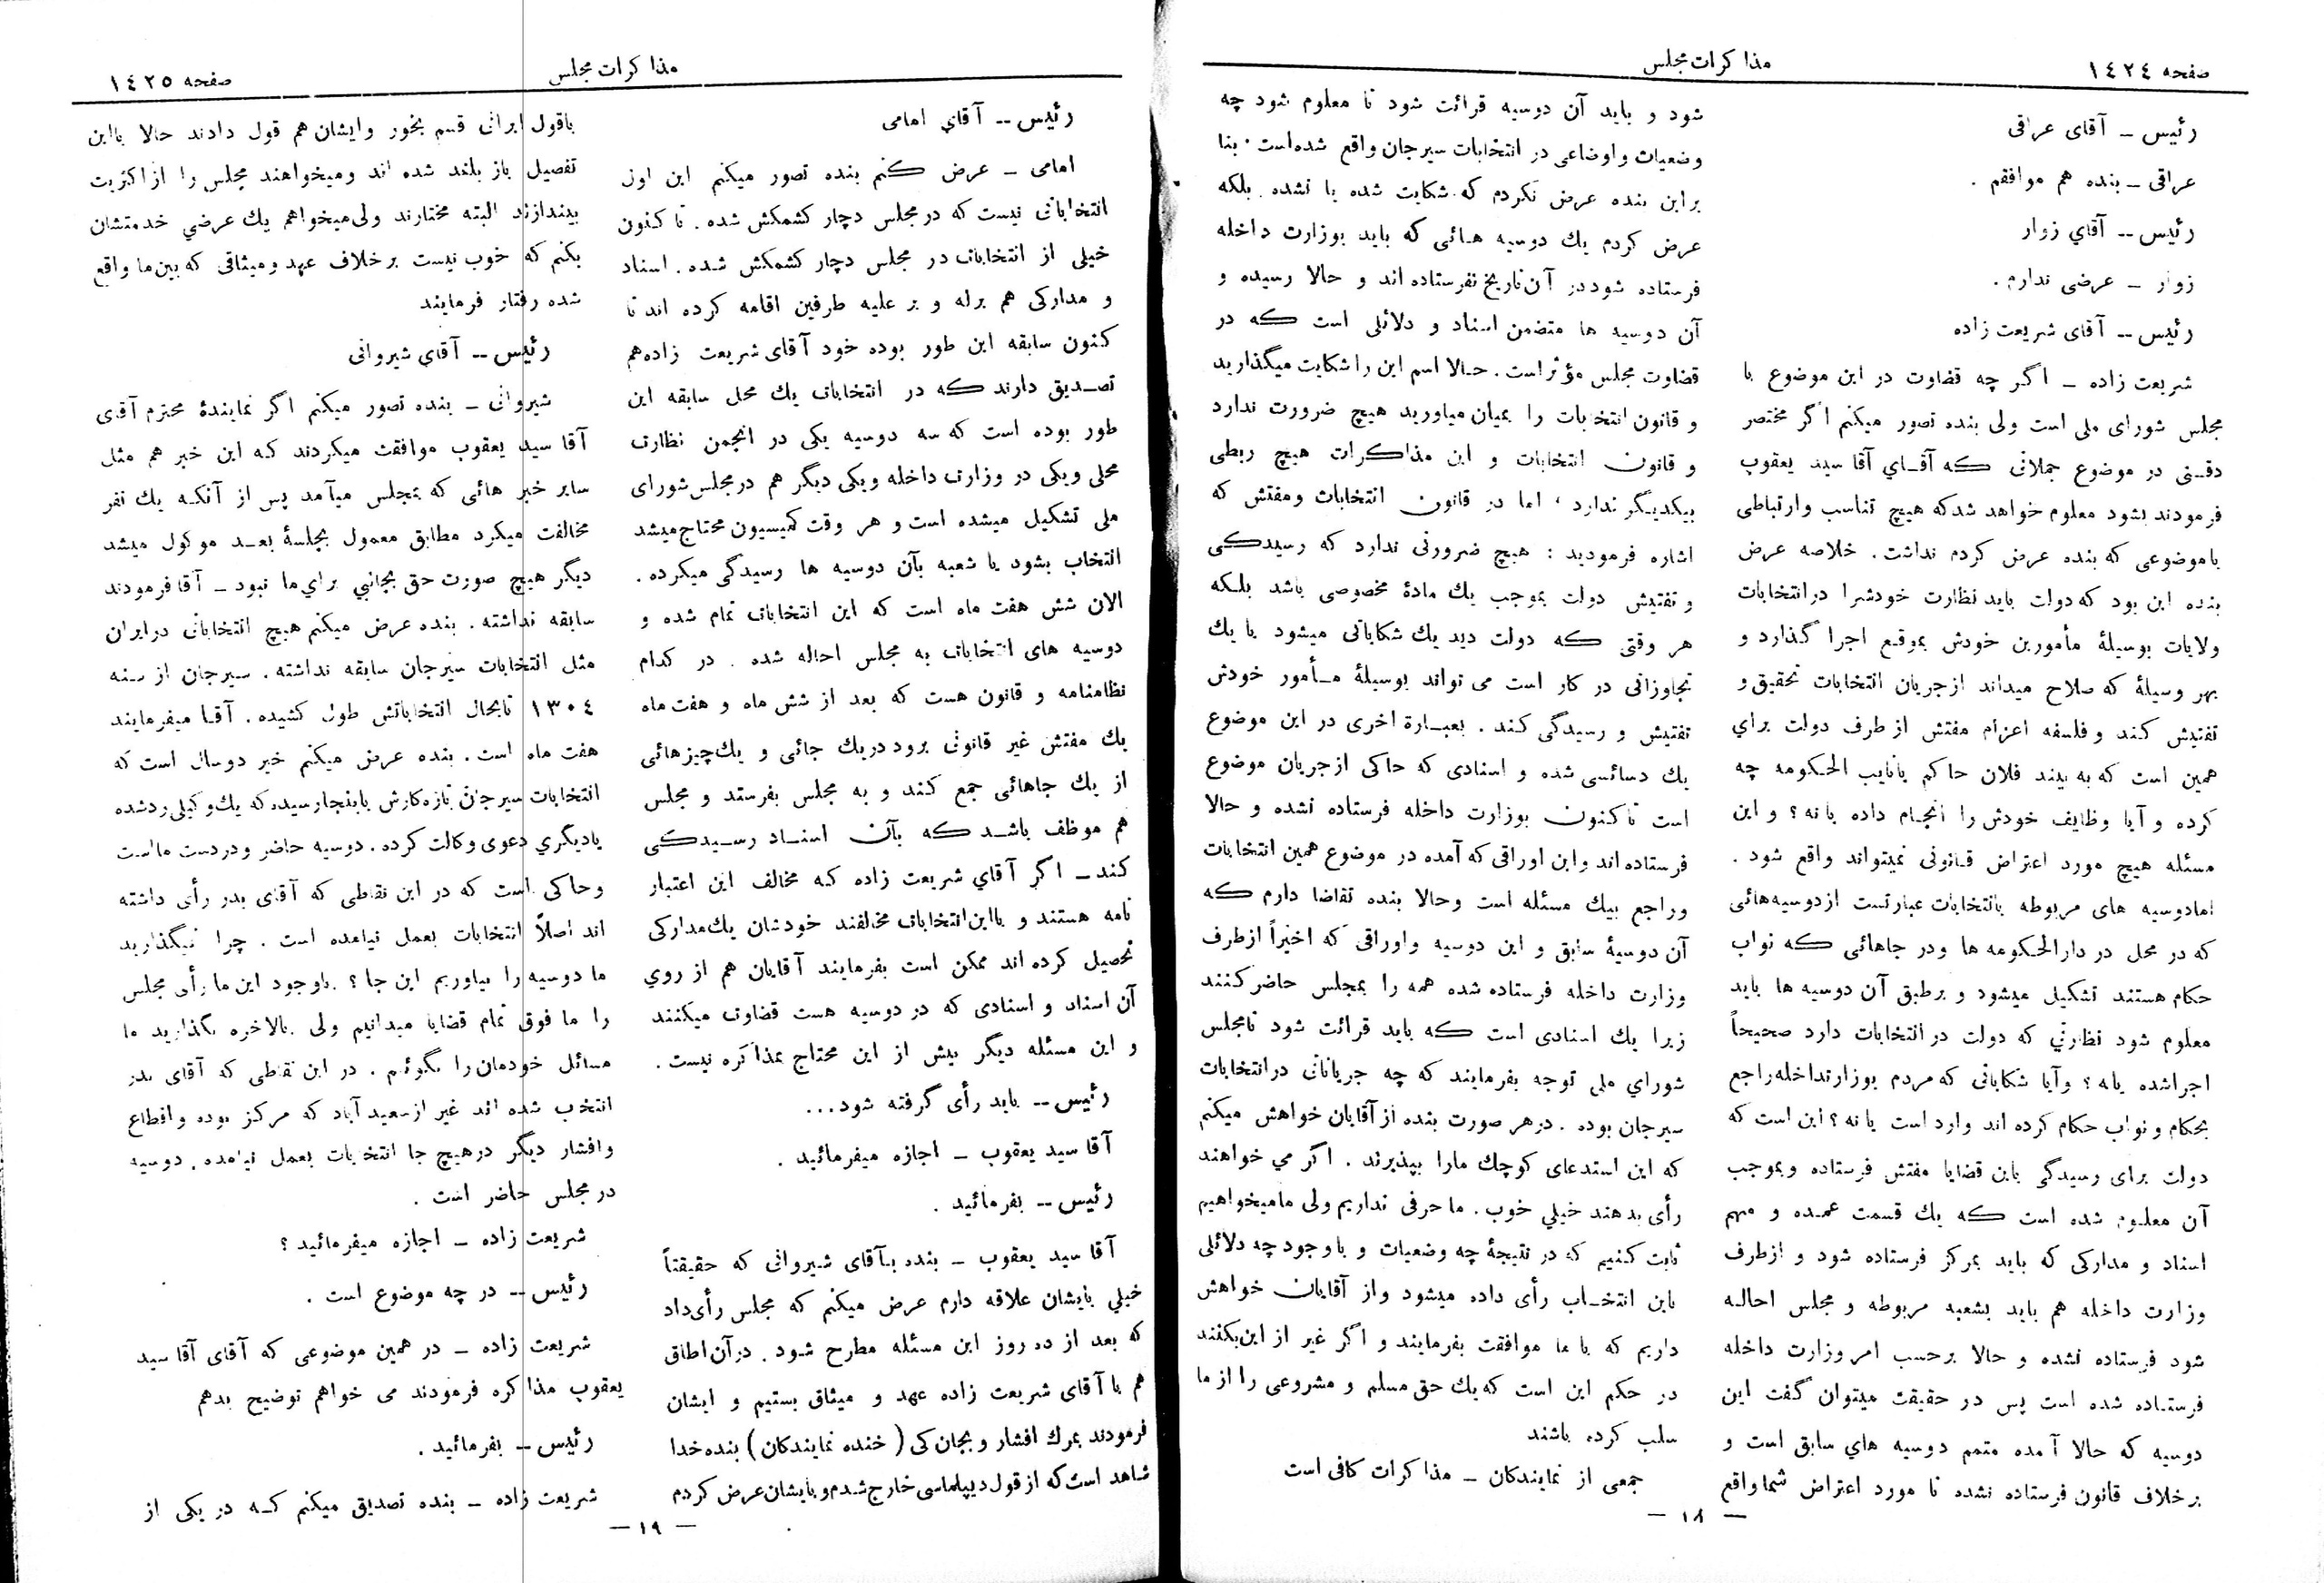 صفحه ١٤٢٤
مذاکرات مجلس
رئیس ــ آقای عراقی
عراقی ــ بنده هم موافقم .
رئیس -- آقاي زوار
زوار ــ عرضی ندارم .
رئیس -- آقای شریعت زاده
شریعت زاده ــ اگر چه قضاوت در این موضوع با
مجلس شورای ملی است ولی بنده تصور میکنم اگر مختصر
دقتی در موضوع جملاتی که آقاي آقا سید یعقوب
فرمودند بشود معلوم خواهد شد که هیچ تناسب وارتباطی
باموضوعی که بنده عرض کردم نداشت . خلاصه عرض
بنده این بود که دولت باید نظارت خودشرا درانتخابات
ولایات بوسیلهٔ مأمورین خودش بموقع اجرا گذارد و
بهر وسیلهٔ که صلاح میداند ازجریان انتخابات تحقیق و
تفتیش کند و فلسفه اعزام مفتش از طرف دولت براي
همین است که به بیند فلان حاکم یانایب الحکومه چه
کرده و آیا وظایف خودش را انجام داده یا نه ؟ و این
مسئله هیچ مورد اعتراض قانونی نمیتواند واقع شود .
امادوسیه های مربوطه بانتخابات عبارتست ازدوسیه‌هائی
که در محل در دارالحکومه ها ودر جاهائی که نواب
حکام هستند تشکیل میشود و برطبق آن دوسیه ها باید
معلوم شود نظارتي که دولت در انتخابات دارد صحیحاً
اجراشده یانه ؟ وآیا شکایاتی که مردم بوزارتداخله راجع
بحکام ونواب حکام کرده اند وارد است یا نه ؟ این است که
دولت برای رسیدگی باین قضایا مفتش فرستاده وبموجب
آن معلوم شده است که یك قسمت عمده و مهم
اسناد و مدارکی که باید بمرکز فرستاده شود و ازطرف
وزارت داخله هم باید بشعبه مربوطه و مجلس احاله
شود فرستاده نشده و حالا برحسب امر وزارت داخله
فرستاده شده است پس در حقیقت میتوان گفت این
دوسیه که حالا آمده متمم دوسیه هاي سابق است و
برخلاف قانون فرستاده نشده تا مورد اعتراض شما واقع
شود و باید آن دوسیه قرائت شود تا معلوم شود چه
وضعیات واوضاعی در انتخابات سیرجان واقع شده‌است . بنا
براین بنده عرض نکردم که شکایت شده یا نشده . بلکه
عرض کردم یك دوسیه هائی که باید بوزارت داخله
فرستاده شود در آن تاریخ نفرستاده اند و حالا رسیده و
آن دوسیه ها متضمن اسناد و دلائلی است که در
قضاوت مجلس مؤثر است . حالا اسم این را شکایت میگذارید
و قانون انتخابات را بمیان میاورید هیچ ضرورت ندارد
و قانون انتخابات و این مذاکرات هیچ ربطی
بیکدیگر ندارد ، اما در قانون انتخابات ومفتش که
اشاره فرمودید : هیچ ضرورتی ندارد که رسیدگی
و تفتیش دولت بموجب یك مادهٔ مخصوصی باشد بلکه
هر وقتی که دولت دید یك شکایاتی میشود یا یك
تجاوزاتی در کار است می تواند بوسیلهٔ مأمور خودش
تفتیش و رسیدگی کند . بعبارة اخری در این موضوع
یك دسائسی شده و اسنادی که حاکی ازجریان موضوع
است تاکنون بوزارت داخله فرستاده نشده و حالا
فرستاده اند واین اوراقی که آمده در موضوع همین انتخابات
وراجع بیك مسئله است وحالا بنده تقاضا دارم که
آن دوسیهٔ سابق و این دوسیه واوراقی که اخیراً ازطرف
وزارت داخله فرستاده شده همه را بمجلس حاضر کنند
زیرا یك اسنادی است که باید قرائت شود تامجلس
شوراي ملی توجه بفرمایند که چه جریاناتی درانتخابات
سیرجان بوده . درهر صورت بنده از آقایان خواهش میکنم
که این استدعای کوچك مارا بپذیرند . اگر مي خواهند
رأی بدهند خیلي خوب . ما حرفی نداریم ولی مامیخواهیم
ثابت کنیم که در نتیجهٔ چه وضعیات و با وجود چه دلائلی
باین انتخاب رأی داده میشود واز آقایان خواهش
داریم که با ما موافقت بفرمایند و اگر غیر از این بکنند
در حکم این است که یك حق مسلم و مشروعی را از ما
سلب کرده باشند
جمعی از نمایندگان ــ مذاکرات کافی است
— ١٨ —
مذاکرات مجلس
صفحه ١٤٢٥
رئیس -- آقاي امامی
امامی ــ عرض کنم بنده تصور میکنم این اول
انتخاباتی نیست که در مجلس دچار کشمکش شده . تا کنون
خیلی از انتخابات در مجلس دچار کشمکش شده . اسناد
و مدارکی هم برله و بر علیه طرفین اقامه کرده اند تا
کنون سابقه این طور بوده خود آقای شریعت زاده‌هم
تصدیق دارند که در انتخابات یك محل سابقه این
طور بوده است که سه دوسیه یکی در انجمن نظارت
محلی ویکی در وزارت داخله ویکی دیگر هم درمجلس شورای
ملی تشکیل میشده است و هر وقت کمیسیون محتاج میشد
انتخاب بشود یا شعبه بآن دوسیه ها رسیدگی میکرده .
الان شش هفت ماه است که این انتخابات تمام شده و
دوسیه های انتخابات به مجلس احاله شده . در کدام
نظامنامه و قانون هست که بعد از شش ماه و هفت ماه
یك مفتش غیر قانونی برود دریك جائی و یك چیزهائی
از یك جاهائی جمع کند و به مجلس بفرستد و مجلس
هم موظف باشد که بآن اسناد رسیدگی
کند ــ اگر آقاي شریعت زاده که مخالف این اعتبار
نامه هستند و بااین انتخابات مخالفند خودشان یك مدارکی
تحصیل کرده اند ممکن است بفرمایند آقایان هم از روي
آن اسناد و اسنادی که در دوسیه هست قضاوت میکنند
و این مسئله دیگر بیش از این محتاج بمذاکره نیست .
رئیس -- باید رأی گرفته شود...
آقا سید یعقوب ــ اجازه میفرمائید .
رئیس -- بفرمائید .
آقا سید یعقوب ــ بنده بآقای شیروانی که حقیقتاً
خیلي بایشان علاقه دارم عرض میکنم که مجلس رأی داد
که بعد از ده روز این مسئله مطرح شود . در آن اطاق
هم با آقای شریعت زاده عهد و میثاق بستیم و ایشان
فرمودند بمرك افشار و بجان کی ( خنده نمایندکان ) بنده خدا
شاهد است که از قول دیپلماسی خارج شدم و بایشان عرض کردم
باقول ایرانی قسم بخور وایشان هم قول دادند حالا بااین
تفصیل باز بلند شده اند ومیخواهند مجلس را از اکثریت
بیندازند البته مختارند ولی میخواهم یك عرضي خدمتشان
بکنم که خوب نیست برخلاف عهد ومیثاقی که بین ما واقع
شده رفتار فرمایند
رئیس -- آقای شیروانی
شیروانی ــ بنده تصور میکنم اگر نمایندهٔ محترم آقای
آقا سید یعقوب موافقت میکردند که این خبر هم مثل
سایر خبر هائی که بمجلس میآمد پس از آنکه یك نفر
مخالفت میکرد مطابق معمول بجلسهٔ بعد موکول میشد
دیگر هیچ صورت حق بجانبي براي ما نبود ــ آقا فرمودند
سابقه نداشته . بنده عرض میکنم هیچ انتخاباتی درایران
مثل انتخابات سیرجان سابقه نداشته . سیرجان از سنه
١٣٠٤ تابحال انتخاباتش طول کشیده . آقا میفرمایند
هفت ماه است . بنده عرض میکنم خیر دوسال است که
انتخابات سیرجان تازه کارش باینجا رسیده که یك وکیلی ردشده
یادیگري دعوی وکالت کرده . دوسیه حاضر ودردست ما است
وحاکی است که در این نقاطی که آقای بدر رأی داشته
اند اصلاً انتخابات بعمل نیامده است . چرا نمیگذارید
ما دوسیه را بیاوریم این جا ؟ باوجود این ما رأی مجلس
را ما فوق تمام قضایا میدانیم ولی بالاخره بگذارید ما
مسائل خودمان را بگوئیم . در این نقاطی که آقای بدر
انتخب شده اند غیر از سعید آباد که مرکز بوده واقطاع
وافشار دیگر درهیچ جا انتخابات بعمل نیامده . دوسیه
در مجلس حاضر است .
شریعت زاده ــ اجازه میفرمائید ؟
رئیس -- در چه موضوع است .
شریعت زاده ــ در همین موضوعی که آقای آقا سید
یعقوب مذاکره فرمودند می خواهم توضیح بدهم
رئیس -- بفرمائید .
شریعت زاده ــ بنده تصدیق میکنم که در یکی از
— ١٩ —